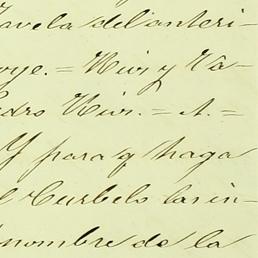 avela del anteri-
oye. = Uix y Va-
edro Uix. = A. =
Y para q haga
l Curbelo las in-
nombre de la